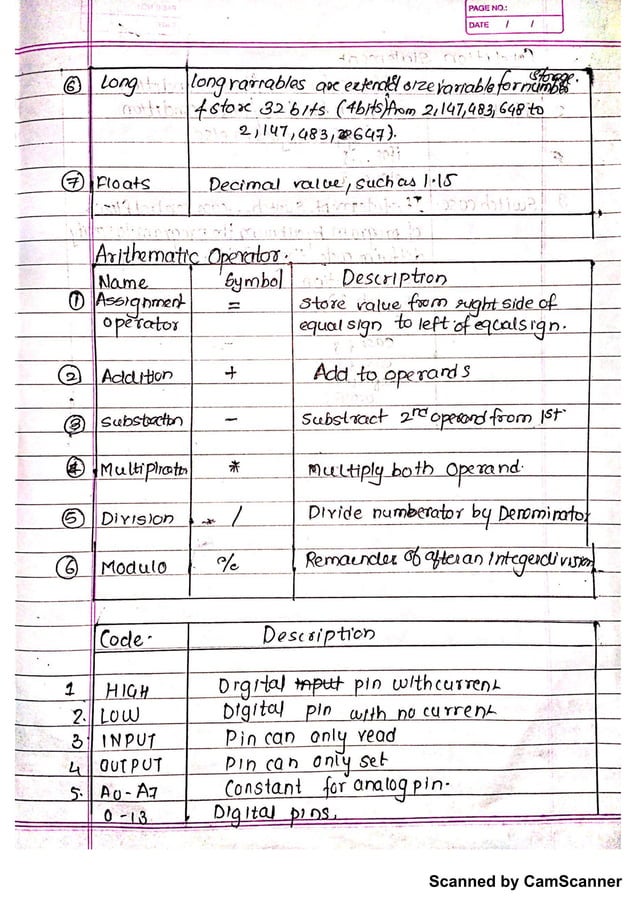 PAGE NO.:
DATE / /
⑥ Long long variables are extended size variable for number storage.
& store 32 bits. (4bits) from 2,147,483,648 to
2,147,483,647).
⑦ Floats Decimal value, such as 1.15
Arithematic Operator.
Name Symbol Description
① Assignment = Store value from right side of
operator equal sign to left of equal sign.
② Addition + Add to operands
③ Substraction - Substract 2nd operand from 1st
④ Multiplication * Multiply both Operand.
⑤ Division / Divide numberator by Denominator
⑥ Modulo % Remainder of after an Integer division
Code. Description
1 HIGH Digital input pin with current
2. LOW Digital pin with no current
3 INPUT Pin can only read
4 OUTPUT Pin can only set
5. A0-A7 Constant for analog pin.
0-13 Digital pins.
Scanned by CamScanner